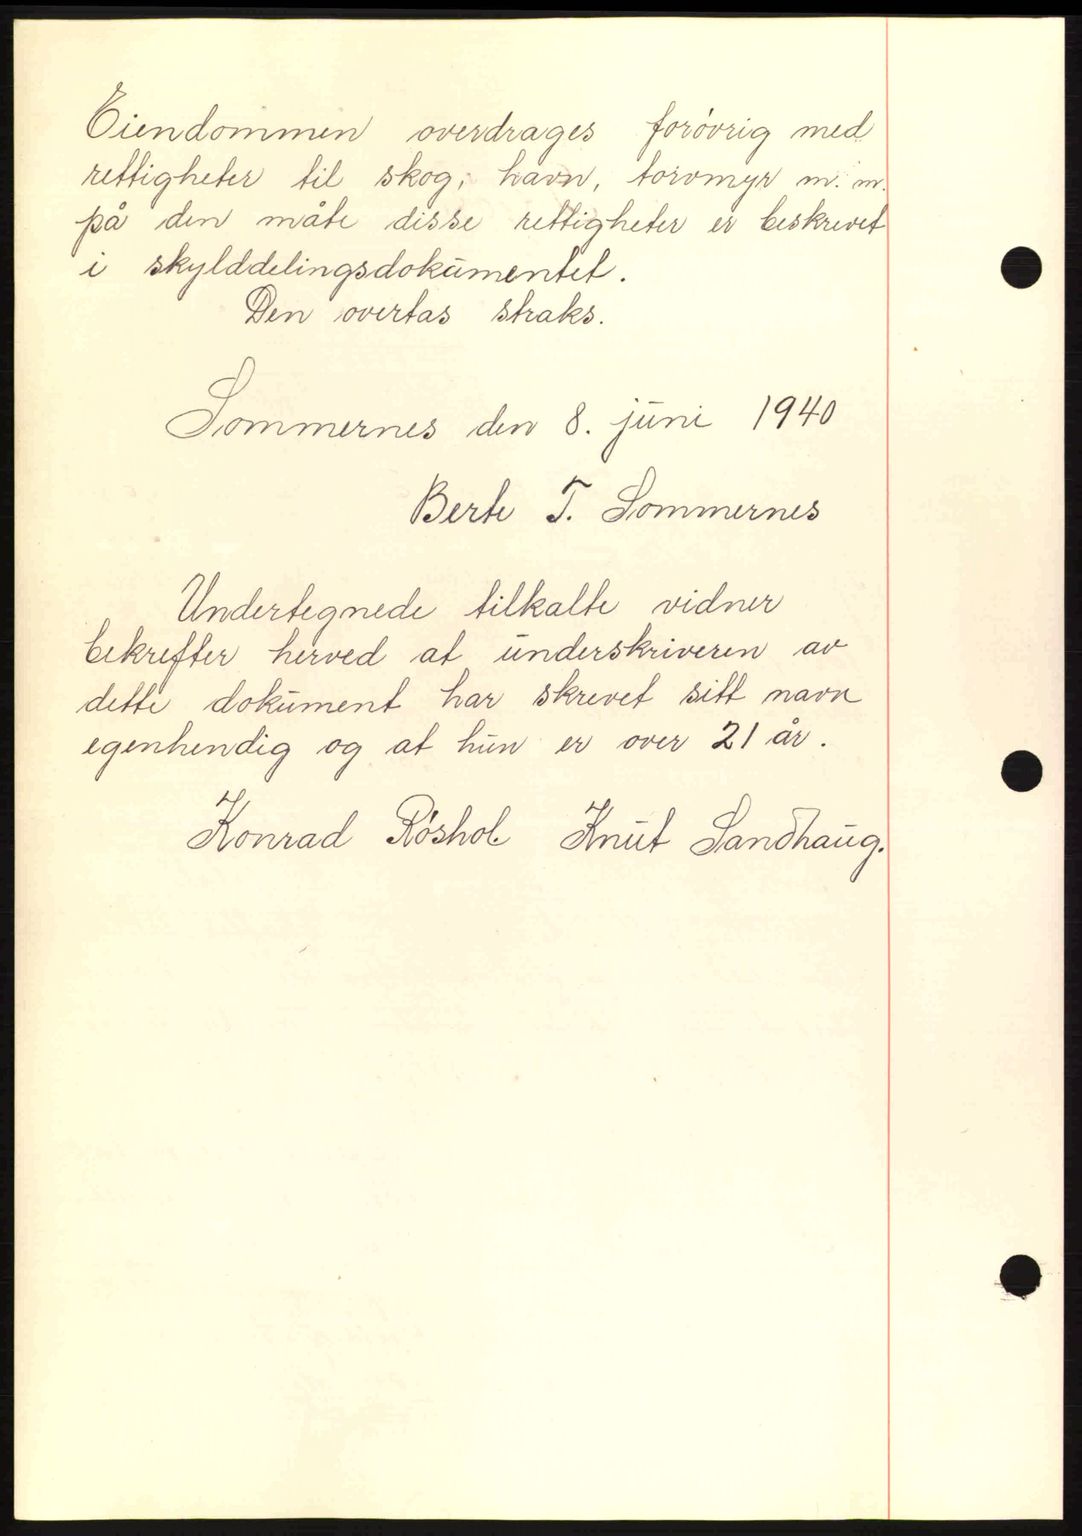 Eiendommen overdrages forøvrig med
rettigheter til skog, havn, torvmyr m. m.
på den måte disse rettigheter er beskrevet
i skylddelingsdokumentet.
Den overtas straks.
Sommernes den 8. juni 1940
Berte T. Sommernes
Undertegnede tilkalte vidner
bekrefter herved at underskriveren av
dette dokument har skrevet sitt navn
egenhendig og at hun er over 21 år.
Konrad Røshol Knut Sandhaug.